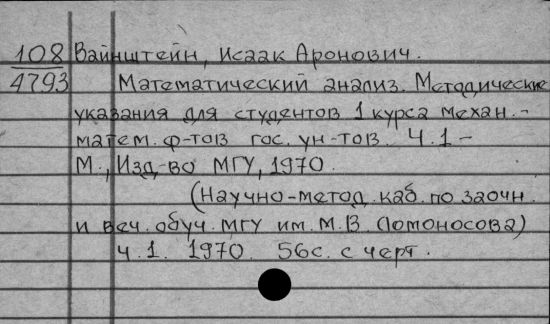 108 Вайнштейн, Исаак Аронович.
4793 Математический анализ. Методические
указания для студентов 1 курса механ.-
матем. ф-тов гос. ун-тов. Ч.1-
М., Изд-во МГУ, 1970.
(Научно-метод. каб. по заочн.
и веч. обуч. МГУ им. М.В. Ломоносова)
Ч.1. 1970. 56с. с черт.